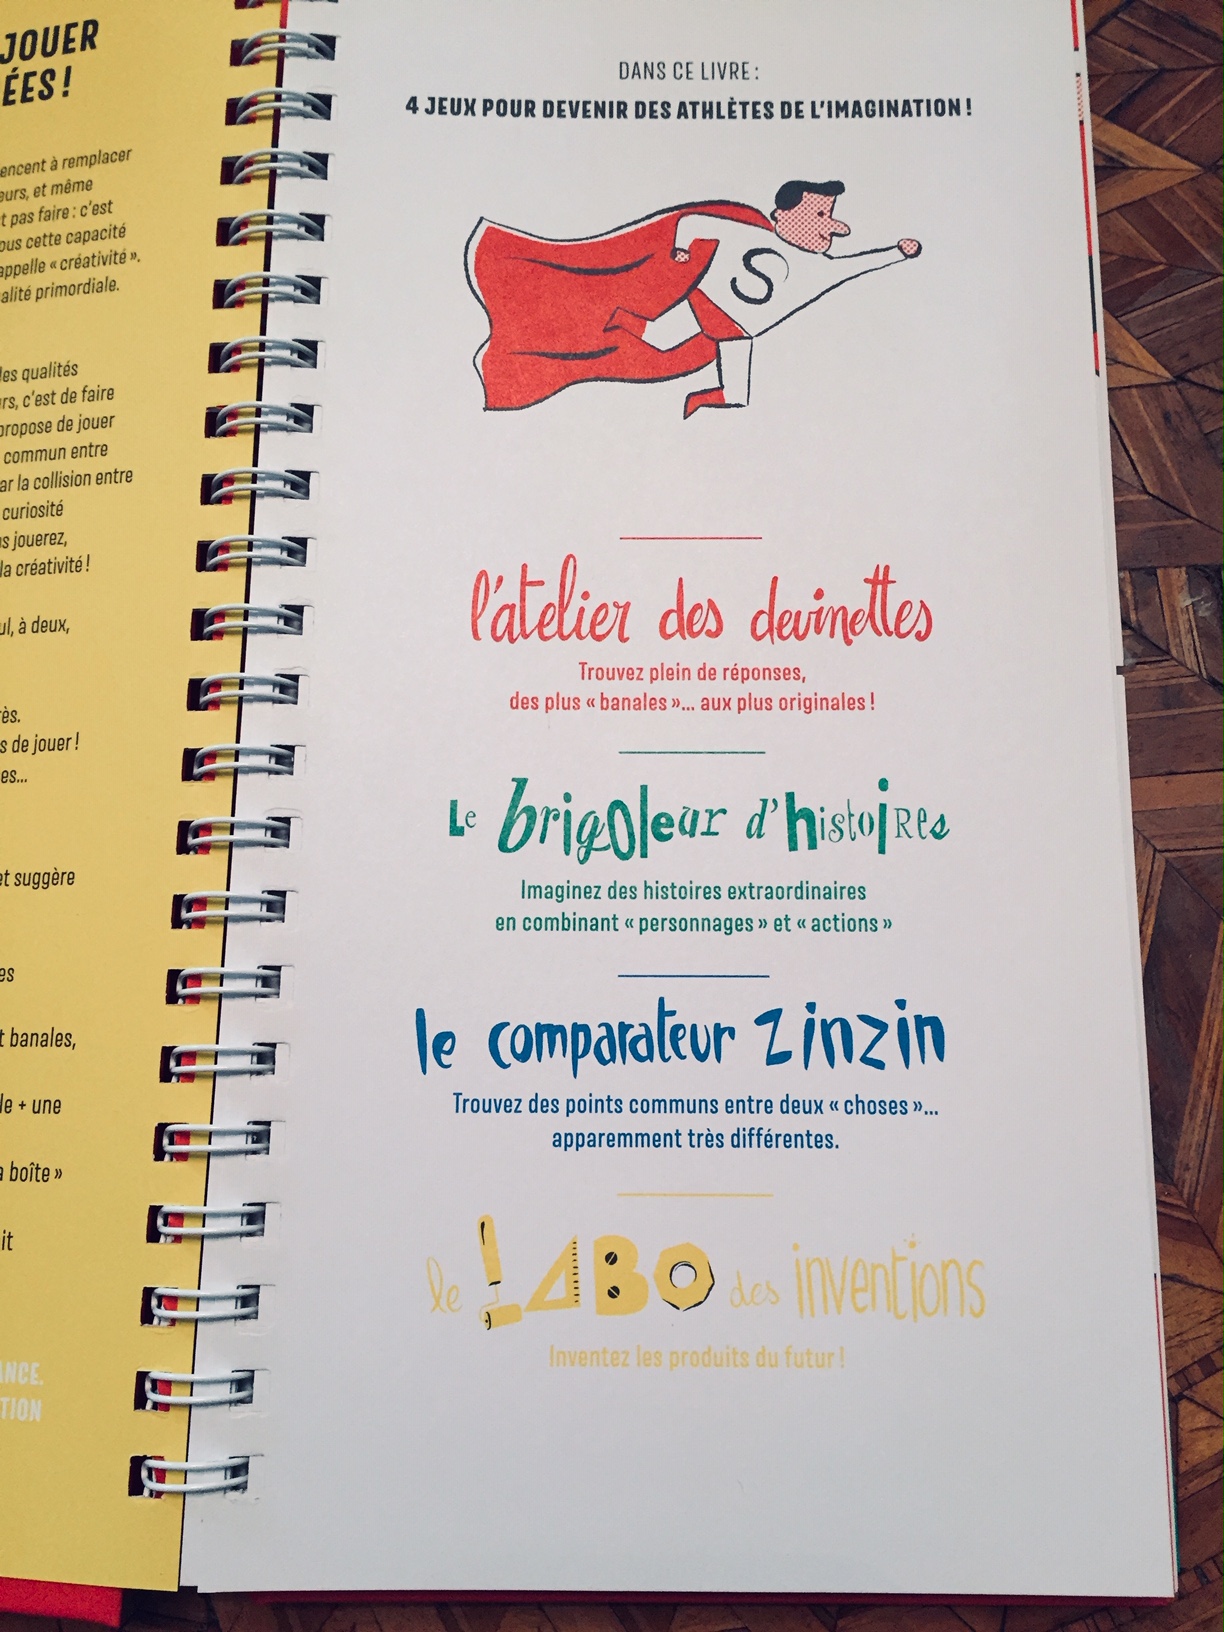 JOUER
ÉES !
encent à remplacer
eurs, et même
t pas faire : c'est
ous cette capacité
appelle « créativité ».
alité primordiale.
les qualités
rs, c'est de faire
propose de jouer
commun entre
ar la collision entre
curiosité
s jouerez,
la créativité !
ul, à deux,
ès.
s de jouer !
es...
et suggère
es
t banales,
le + une
a boîte »
it
ANCE.
TION
DANS CE LIVRE :
4 JEUX POUR DEVENIR DES ATHLÈTES DE L'IMAGINATION !
S
l'atelier des devinettes
Trouvez plein de réponses,
des plus « banales »... aux plus originales !
Le brigoleur d'histoires
Imaginez des histoires extraordinaires
en combinant « personnages » et « actions »
le comparateur zinzin
Trouvez des points communs entre deux « choses »...
apparemment très différentes.
le LABO des inventions
Inventez les produits du futur !